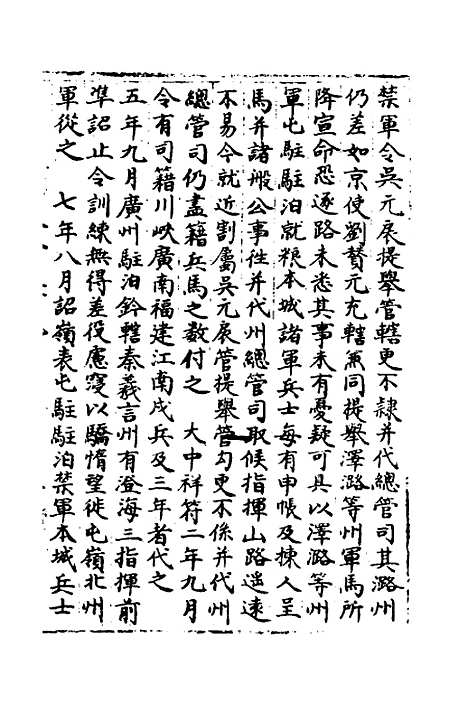 禁軍令吳元扆提舉管轄更不隸并代總管司其潞州
仍差如京使劉贊元充轄兼同提舉澤潞等州軍馬所
降宣命恐逐路未悉其事未有憂疑可具以澤潞等州
軍屯駐駐泊就粮本城諸軍兵士每有申帳及揀人呈
馬并諸般公事往并代州總管司取候指揮山路遥遠
不易今就近割屬吳元扆管提舉管勾更不係并代州
總管司仍盡籍兵馬之數付之　大中祥符二年九月
令有司籍川峽廣南福建江南戍兵及三年者代之
五年九月廣州駐泊鈐轄秦羲言州有澄海三指揮前
準詔止令訓練無得差役慮寖以驕惰望徙屯嶺北州
軍從之　七年八月詔嶺表屯駐駐泊禁軍本城兵士